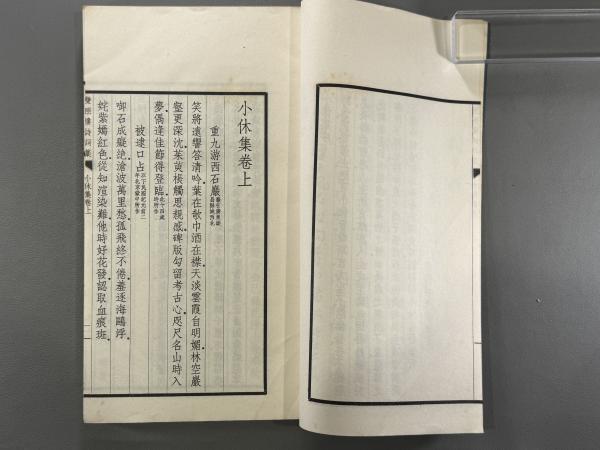 小休集卷上
重九游西石巖
笑將遠響答清吟葉在欹巾酒在襟天淡雲霞自明媚林空巖
壑更深沈茱萸棖觸思親感碑版勾留考古心咫尺名山時入
夢偶逢佳節得登臨此十四歲時所作
被逮口占
啣石成癡絶滄波萬里愁孤飛終不倦羞逐海鷗浮
姹紫嫣紅色從知渲染難他時好花發認取血痕斑
雙照樓詩詞藁 小休集卷上 一